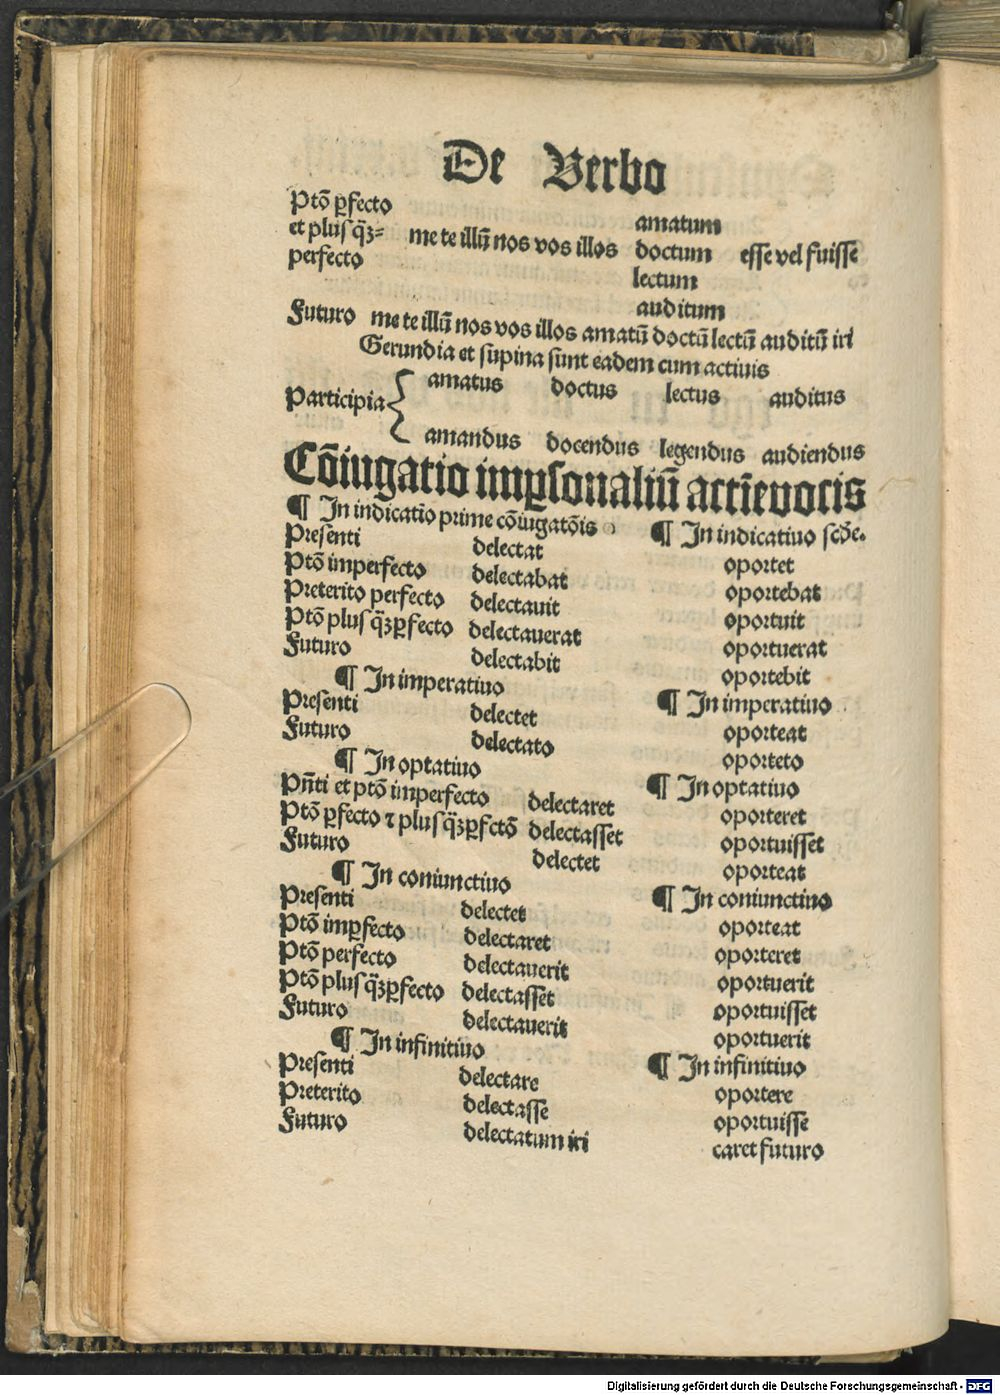 De Verbo
Ptō ꝑfecto amatum
et plusq̄ꝫ= me te illū nos vos illos doctum esse vel fuisse
perfecto lectum
auditum
Futuro me te illū nos vos illos amatū doctū lectū auditū iri
Gerundia et supina sunt eadem cum actiuis
Participia { amatus doctus lectus auditus
amandus docendus legendus audiendus
Cōiugatio imꝑsonaliū actīe vocis
¶ In indicatīo prime cōiugatōis ¶ In indicatiuo scd̄e.
Presenti delectat oportet
Ptō imperfecto delectabat oportebat
Preterito perfecto delectauit oportuit
Ptō plusq̄ꝫꝑfecto delectauerat oportuerat
Futuro delectabit oportebit
¶ In imperatiuo ¶ In imperatiuo
Presenti delectet oporteat
Futuro delectato oporteto
¶ In optatiuo ¶ In optatiuo
Pn̄ti et ptō imperfecto delectaret oporteret
Ptō ꝑfecto ⁊ plusq̄ꝫꝑfctō delectasset oportuisset
Futuro delectet oporteat
¶ In coniunctiuo ¶ In coniunctiuo
Presenti delectet oporteat
Ptō imꝑfecto delectaret oporteret
Ptō perfecto delectauerit oportuerit
Ptō plusq̄ꝫꝑfecto delectasset oportuisset
Futuro delectauerit oportuerit
¶ In infinitiuo ¶ In infinitiuo
Presenti delectare oportere
Preterito delectasse oportuisse
Futuro delectatum iri caret futuro
Digitalisierung gefördert durch die Deutsche Forschungsgemeinschaft - DFG